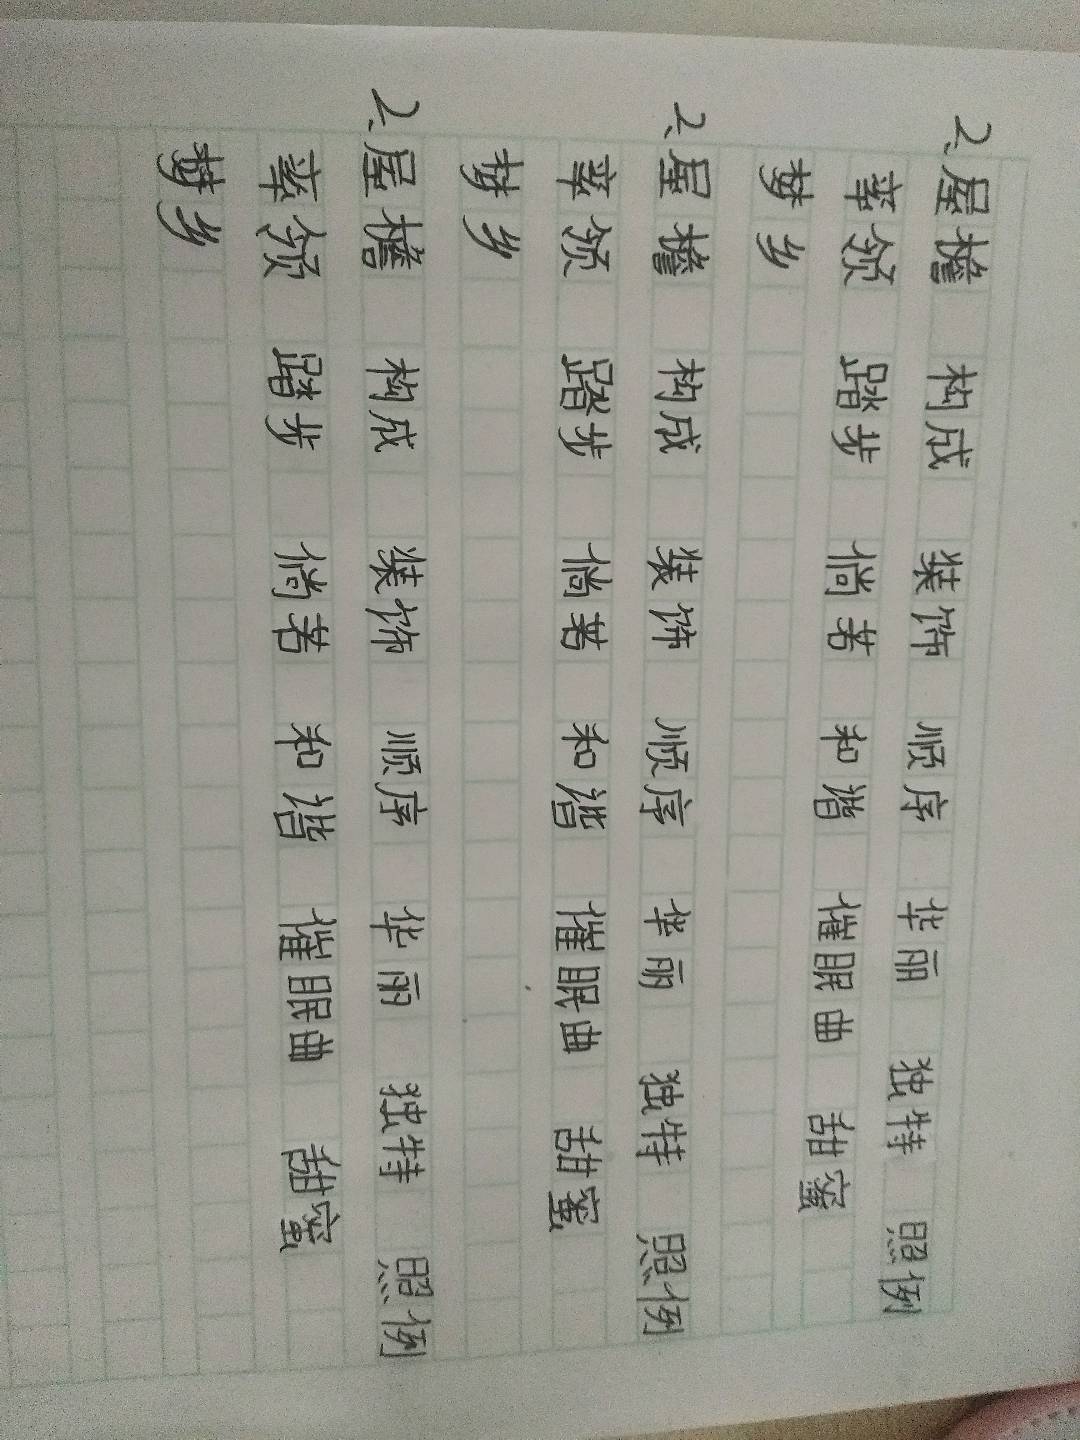 2、屋檐 构成 装饰 顺序 华丽 独特 照例
率领 踏步 倘若 和谐 催眠曲 甜蜜
梦乡
2、屋檐 构成 装饰 顺序 华丽 独特 照例
率领 踏步 倘若 和谐 催眠曲 甜蜜
梦乡
2、屋檐 构成 装饰 顺序 华丽 独特 照例
率领 踏步 倘若 和谐 催眠曲 甜蜜
梦乡